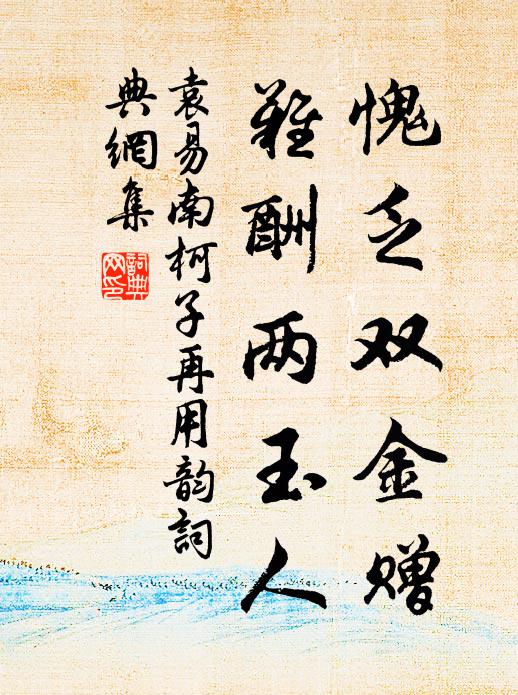 愧乏双金赠
难酬两玉人
袁易南柯子再用韵詞
典網集
詞典
网印